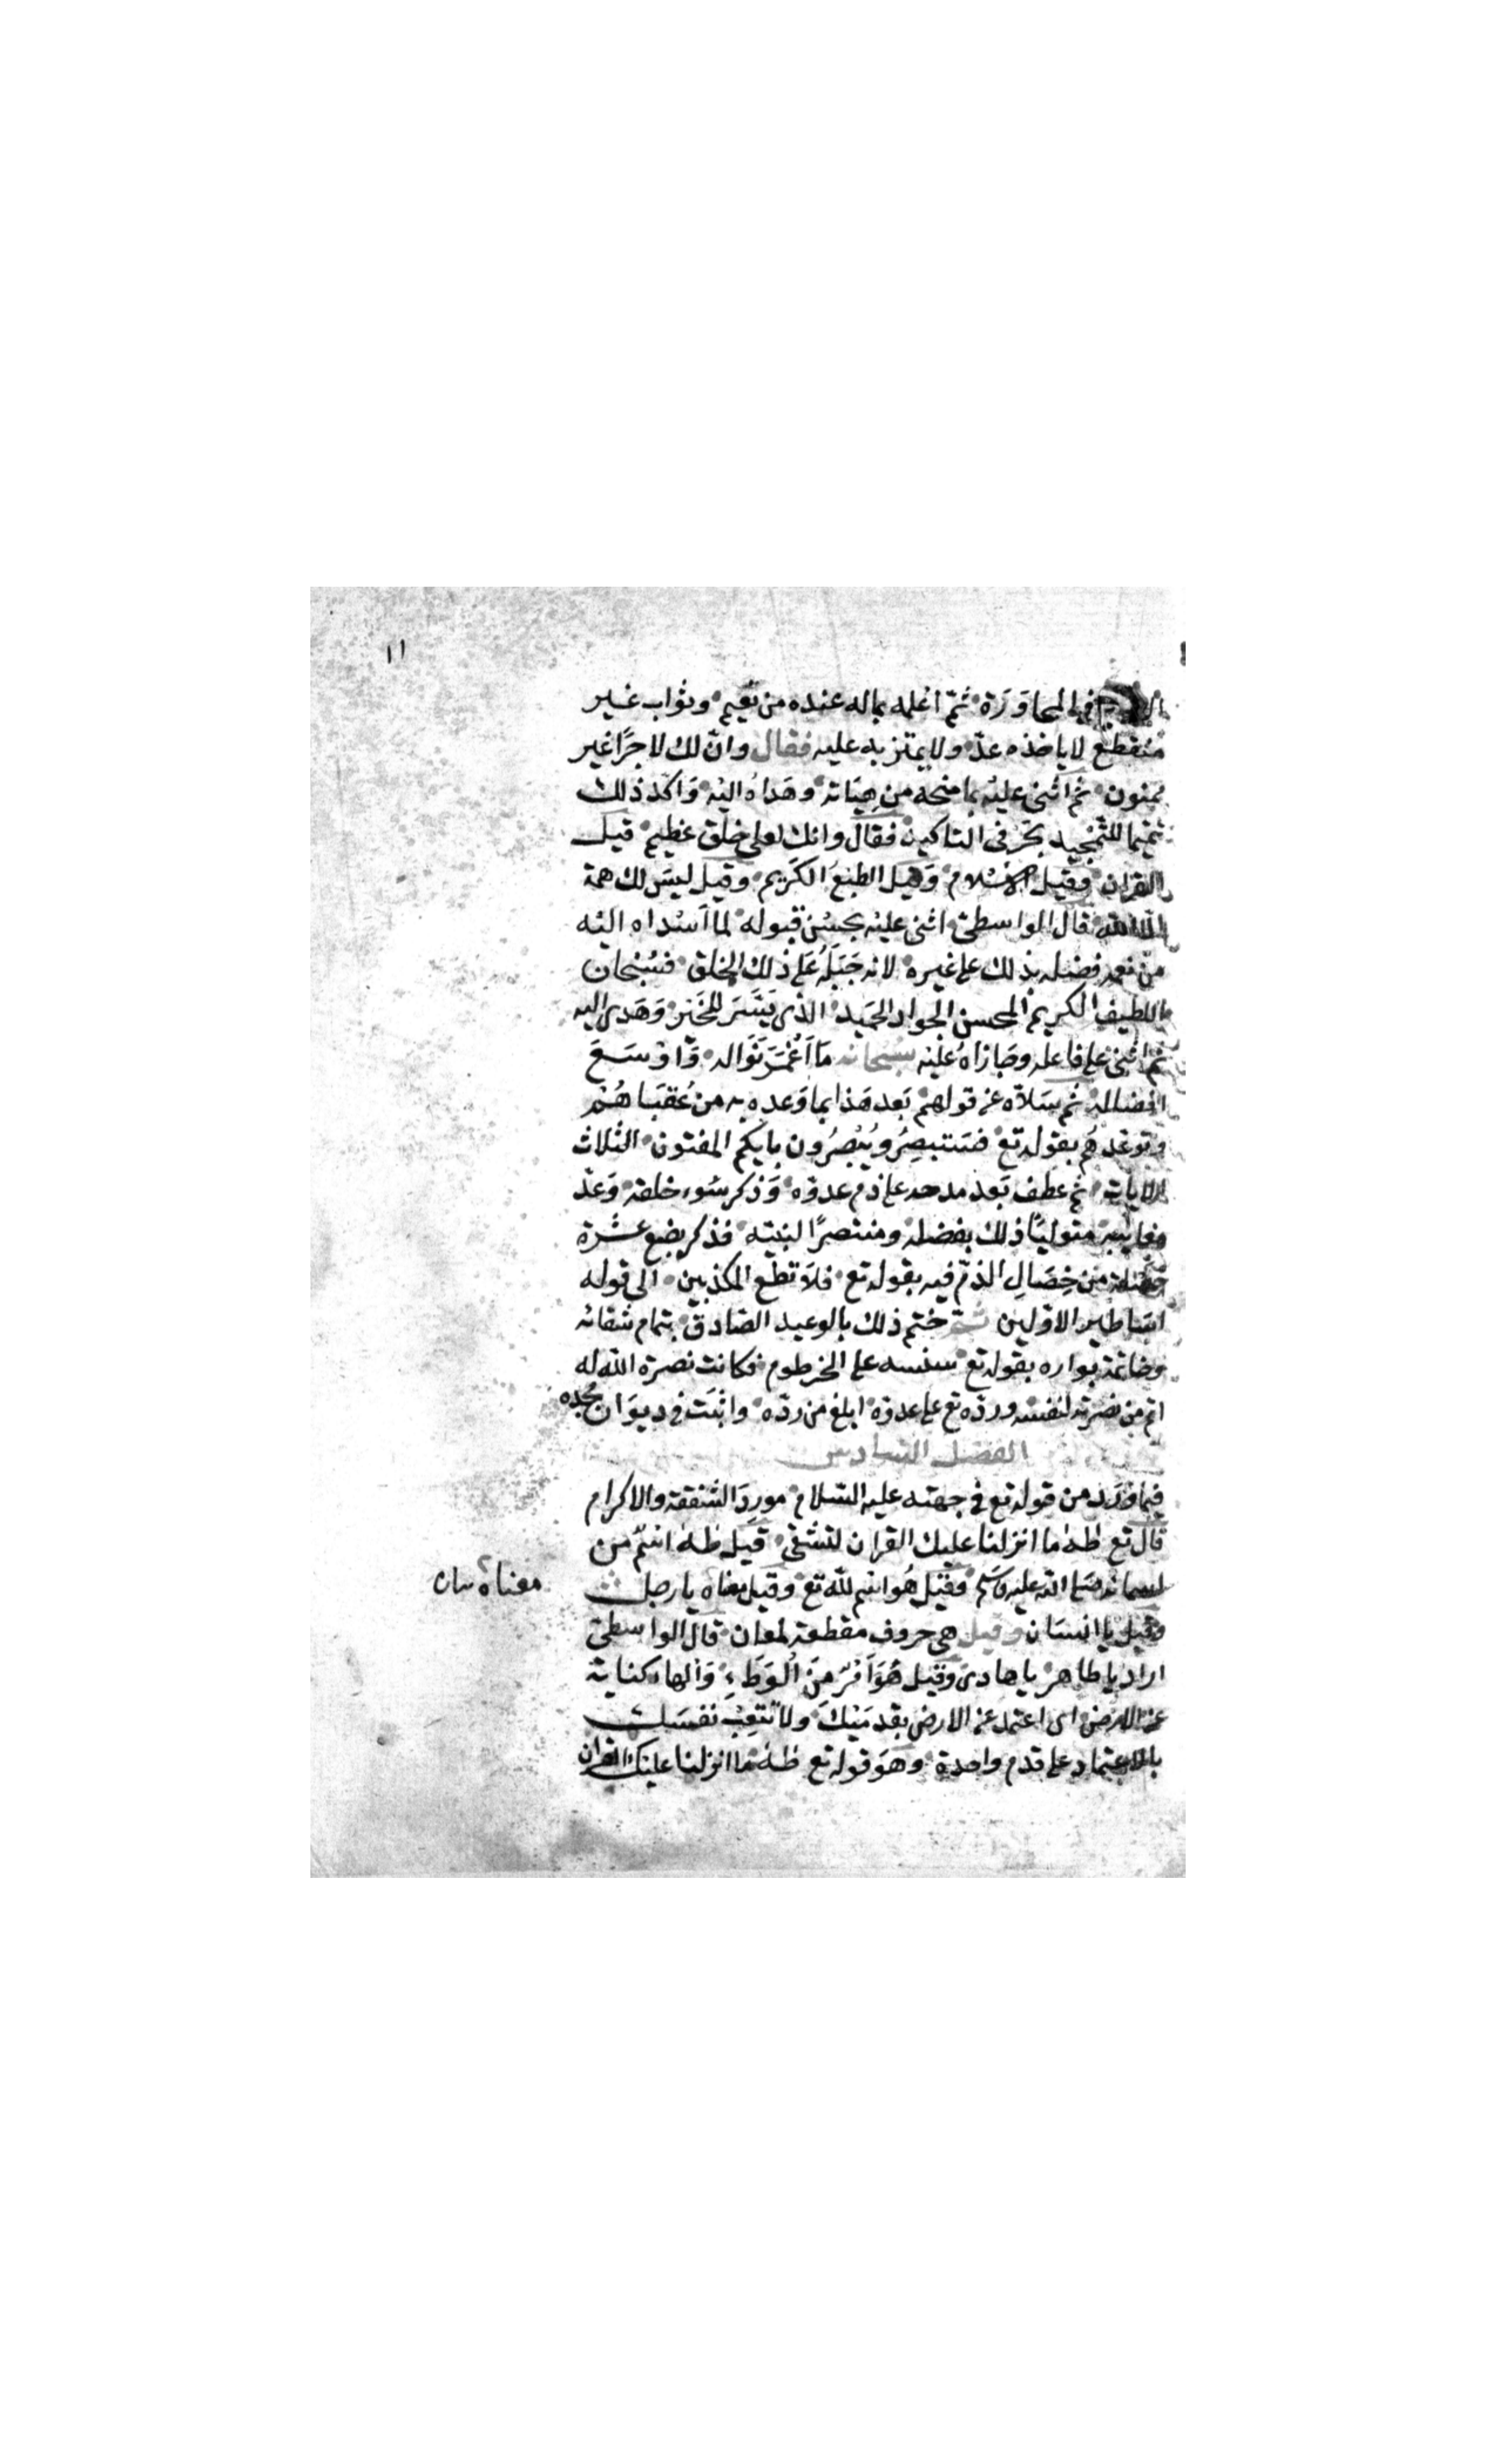 ١١
في المحاورة ثمّ اعلمه بماله عنده من نعيم وثواب غير
منقطع لا ياخذه عدّ ولا يمتن به عليه فقال وانّ لك لاجرًا غير
ممنون ثم اثنى عليه بما منحه من هباته وهداه اليه واكّد ذلك
تتميما للتمجيد بحرفى التاكيد فقال وانك لعلى خلق عظيم قيل
القران وقيل الاسلام وقيل الطبع الكريم وقيل ليس لك همة
الا الله قال الواسطى اثنى عليه بحسن قبوله لما اسداه اليه
من نعمه فضله بذلك على غيره لانه جبله على ذلك الخلق فسبحان
اللطيف الكريم المحسن الجواد الحميد الذى يسّر للخير وهدى اليه
ثم اثنى على فاعله وجازاه عليه سبحانه ما اغمر نواله واوسع
افضاله ثم سلاّه عن قولهم بعد هذا بما وعده به من عقباهم
وتوعدهم بقوله تع فستبصر ويبصرون بايكم المفتون الثلاث
الايات ثم عطف بعد مدحه على ذم عدوّه وذكر سوء خلقه وعدّ
معايبه متوليًا ذلك بفضله ومنتصرًا لنبيّه فذكر بضع عشرة
خصلة من خصال الذمّ فيه بقوله تع فلا تطع المكذبين الى قوله
اساطير الاوّلين ثم ختم ذلك بالوعيد الصادق بتمام شقائه
وخاتمة بواره بقوله تع سنسمه على الخرطوم فكانت نصرة الله له
اتم من نصرته لنفسه وردّه تع على عدوّه ابلغ من ردّه واثبت فى ديوان مجده
الفصل السادس
فيما ورد من قوله تع فى جهته عليه السّلام مورد الشفقة والاكرام
قال تع طٰهٰ ما انزلنا عليك القران لتشقى قيل طٰهٰ اسم من
اسمائه صلى الله عليه وسلم وقيل هو اسم لله تع وقيل معناه يا رجل
وقيل يا انسان وقيل هى حروف مقطعة لمعان قال الواسطى
اراد يا طاهر يا هادى وقيل هو امر من الوطء والهاء كناية
عن الارض اى اعتمد على الارض بقدميك ولا تتعب نفسك
بالاعتماد على قدم واحدة وهو قوله تع طٰهٰ ما انزلنا عليك القران
معناه